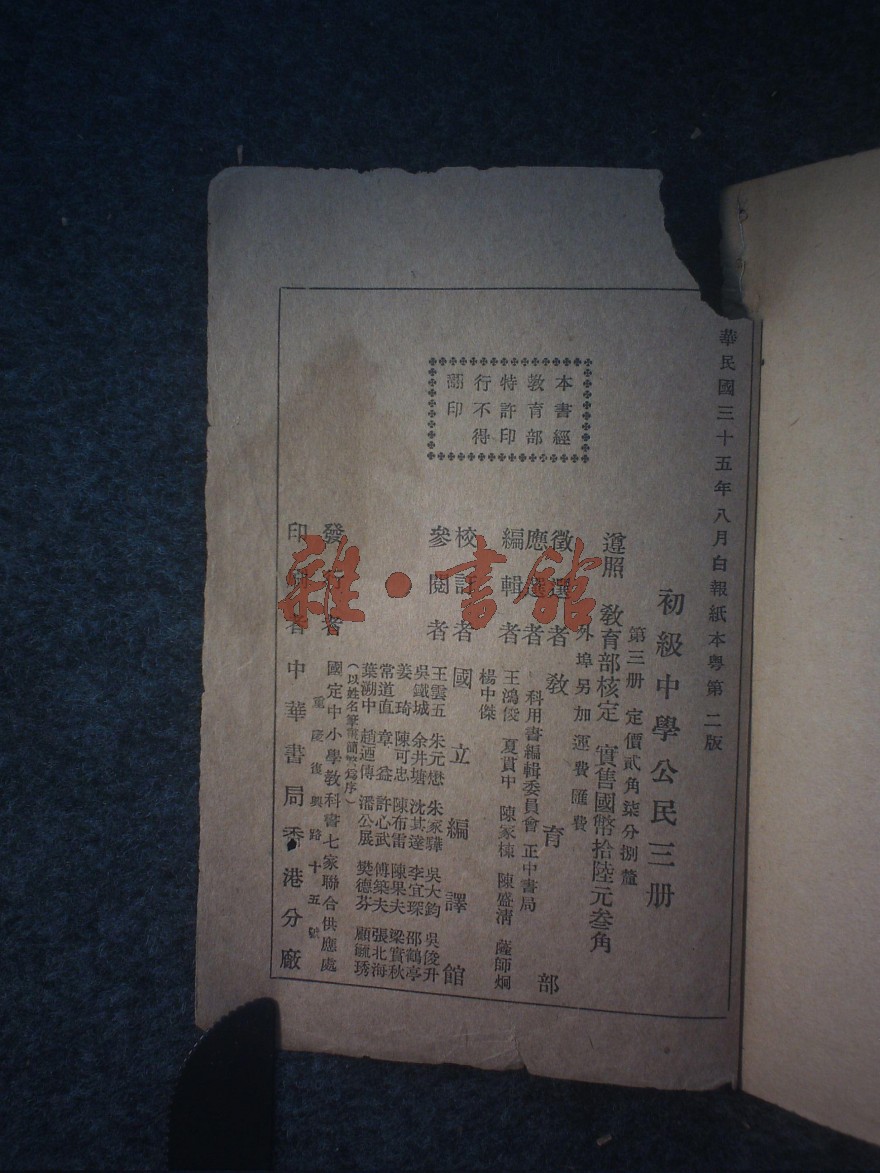 華民國三十五年八月白報紙本粵第二版
初級中學公民三册
第三册 定價貳角柒分捌釐
遵照 教育部核定 實售國幣拾陸元叁角
外埠另加運費匯費
本書經
教育部
特許印
行不得
翻印
徵選者 教育部
應選者 科用書編輯委員會 正中書局
編輯者 王鴻俊 夏貫中 陳家棟 陳盛清 薩師炯
楊中傑
校訂者 國立編譯館
參閱者 王雲五 朱元懋 朱家驊 吳大鈞 吳俊升
吳鐵城 余井塘 沈其達 李宜琛 邵鶴亭
姜琦 陳可忠 陳布雷 陳果夫 梁實秋
常道直 章益 許心武 傅築夫 張北海
葉溯中 趙迺傳 潘公展 樊德芬 顧毓琇
(以姓名筆畫簡繁爲序)
發行者 國定中小學教科書七家聯合供應處
重慶復興路十五號
印刷者 中華書局香港分廠
雜·書館